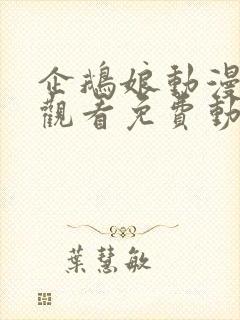 企鵝娘動漫
觀看免費動
葉慧敏